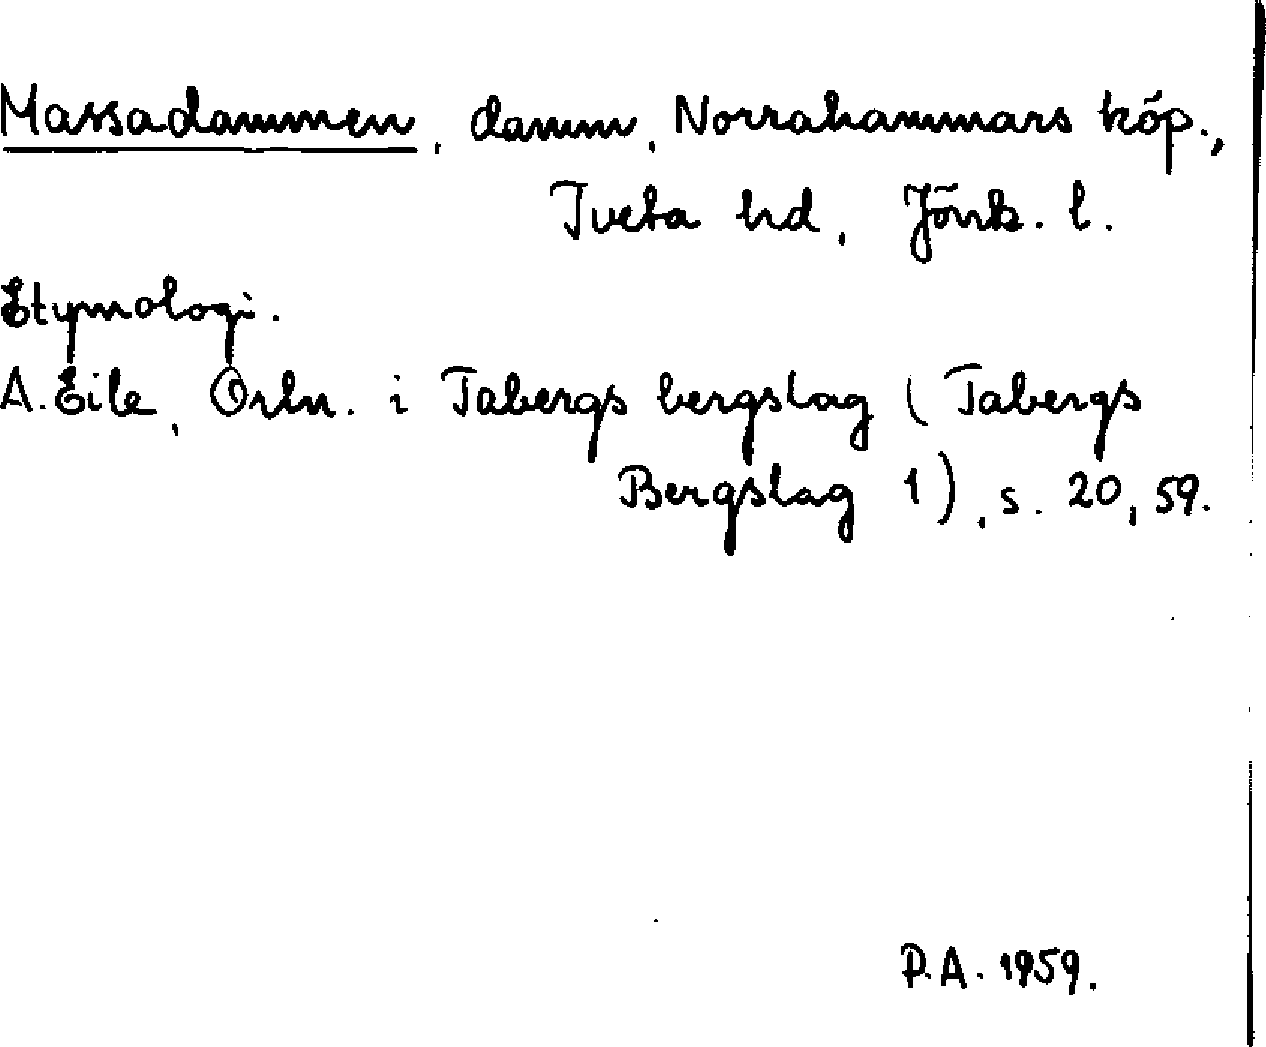 Massadammen, damm, Norrahammars köp.,
Tveta hd, Jönk. l.
Etymologi.
A. Eile, Ortn. i Tabergs bergslag (Tabergs
Bergslag 1), s. 20, 59.
P.A. 1959.